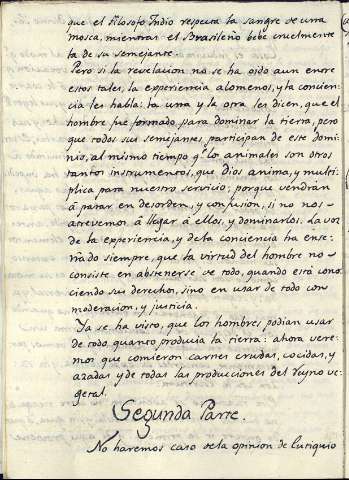 que el filosofo Indio respeta la sangre de una
mosca, mientras el Brasileño bebe cruelmente
la de su semejante.
Pero si la revelacion no se ha oido aun entre
estos tales, la experiencia alomenos, y la concien-
cia les habla: la una y la otra les dicen, que el
hombre fue formado para dominar la tierra, pero
que todos sus semejantes participan de este domi-
nio, al mismo tiempo q.e lo animales son otros
tantos instrumentos, que Dios anima, y multi-
plica para nuestro servicio; porque vendran
á parar en desorden, y confusion, si no nos
atrevemos á llegar á ellos, y dominarlos. La voz
de la experiencia, y dela conciencia ha ense-
ñado siempre, que la virtud del hombre no
consiste en abstenerse de todo, quando está cono-
ciendo sus derechos, sino en usar de todo con
moderacion, y justicia.
Ya se ha visto, que los hombres podian usar
de todo quanto producia la tierra: ahora vere-
mos que comieron carnes crudas, cocidas, y
azadas y de todas las producciones del reyno ve-
getal.
Segunda Parte.
No haremos caso dela opinion de Eutiquio